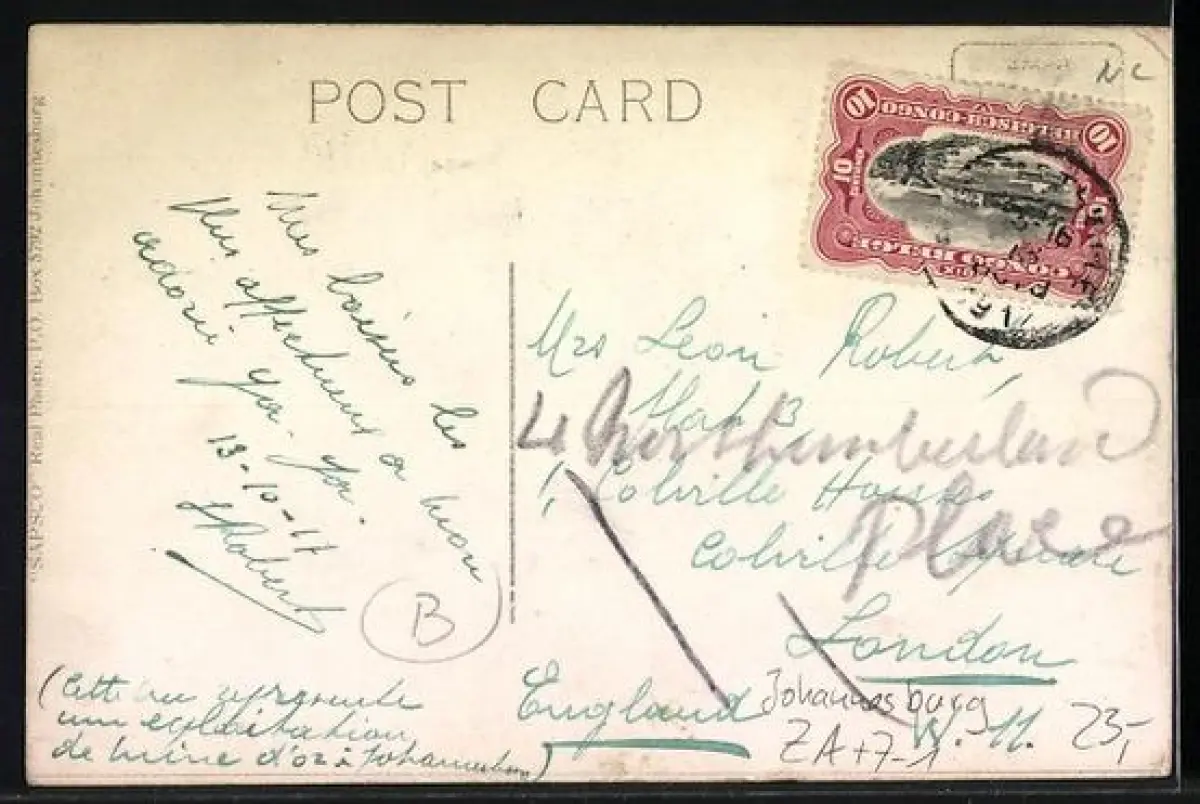 POST CARD
NC
BELGISCH-CONGO
10 10
10
CONGO BELGE
"SAPSCO" Real Photo, P.O. Box 5792 Johannesburg
Mes baisers les
plus affectueux à mon
adorée Ya-Ya.
13-10-17
Robert
B
(Cette vue représente
une exploitation
de mine d'or à Johannesburg)
Mrs Leon Robert,
Flat B
4 Northumberland
1, Colville Houses
Place
Colville Square
London
England W. 11.
Johannesburg
ZA+7-1
23,-